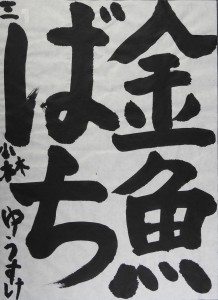 金魚
ばち
三 小林ゆうすけ